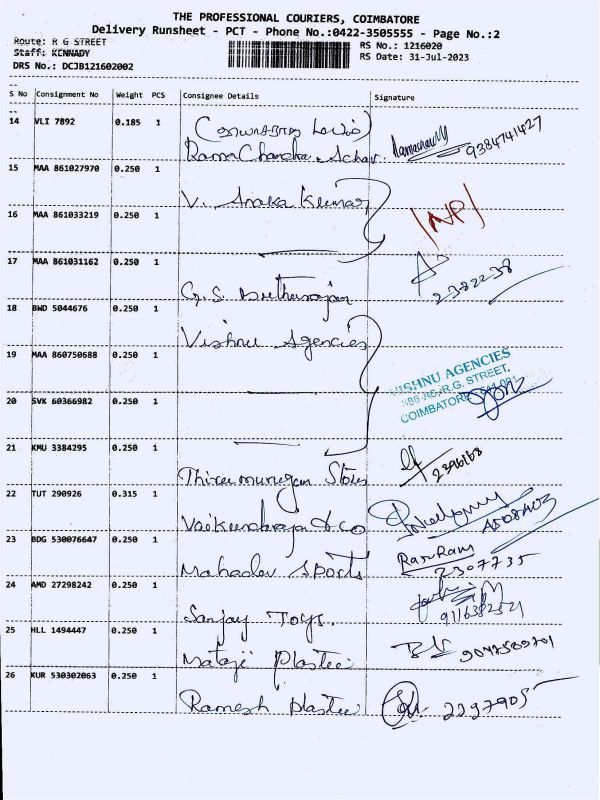 THE PROFESSIONAL COURIERS, COIMBATORE
Delivery Runsheet - PCT - Phone No.:0422-3505555 - Page No.:2
Route: R G STREET
Staff: KENNADY
DRS No.: DCJB121602002
RS No.: 1216020
RS Date: 31-Jul-2023
S No Consignment No Weight PCS Consignee Details Signature
14 VLI 7892 0.185 1
Rama Chandra Achar 9384741427
15 MAA 861027970 0.250 1
V. Kumar
16 MAA 861033219 0.250 1
17 MAA 861031162 0.250 1
G.S. 2382238
18 BWD 5044676 0.250 1
Vishnu Agencies
19 MAA 860750688 0.250 1
VISHNU AGENCIES
R.G. STREET,
COIMBATORE
20 SVK 60366982 0.250 1
21 KMU 3384295 0.250 1
Thirumurugan Stores 2396168
22 TUT 290926 0.315 1
Vaikundaraja & co
23 BDG 530076647 0.250 1
Mahadev Sports 2307735
24 AMD 27298242 0.250 1
Sanjay Toys.
25 HLL 1494447 0.250 1
Mataji Plastic
26 KUR 530302063 0.250 1
Ramesh Plastic 2237905